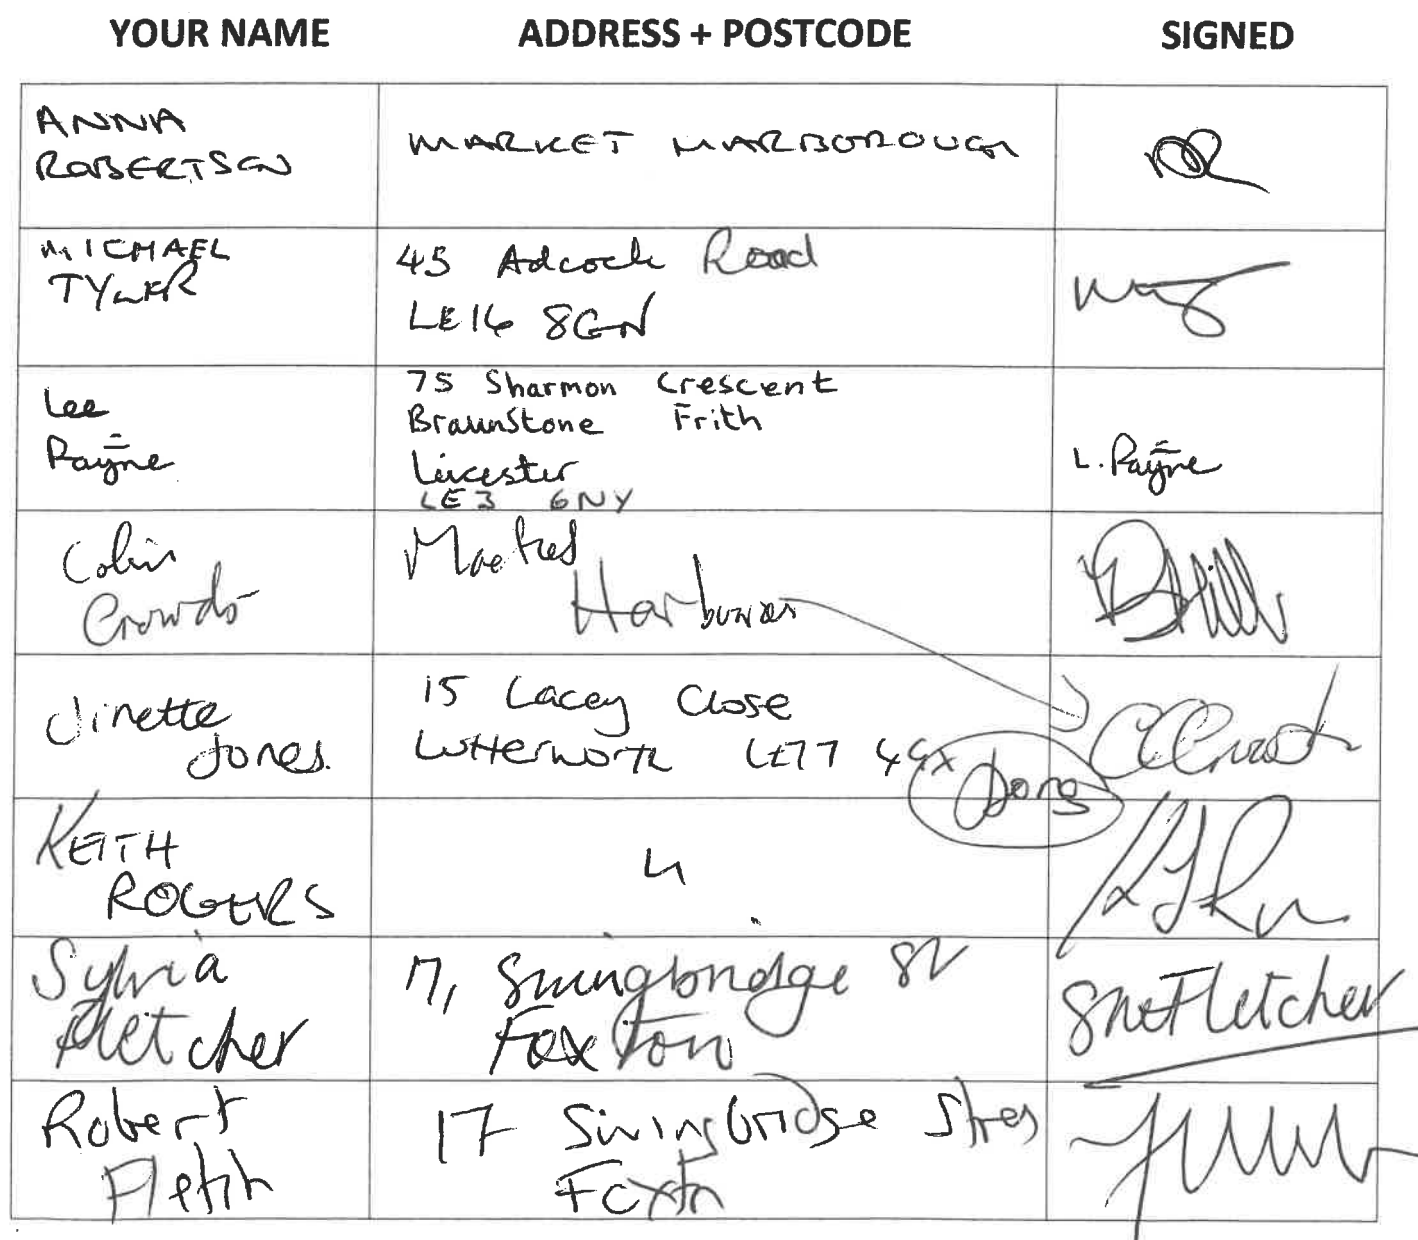 YOUR NAME ADDRESS + POSTCODE SIGNED
ANNA
ROBERTSON
MARKET HARBOROUGH
MICHAEL
TYLER
45 Adcock Road
LE16 8GN
Lee
Payne
75 Sharmon Crescent
Braunstone Frith
Leicester
LE3 6NY
L. Payne
Colin
Crowds
Market
Jinette
Jones.
15 Lacey Close
Lutterworth LE17
KEITH
ROGERS
Sylvia
Fletcher
17, Swingbridge St
Foxton
Fletcher
Robert
17 Swingbridge